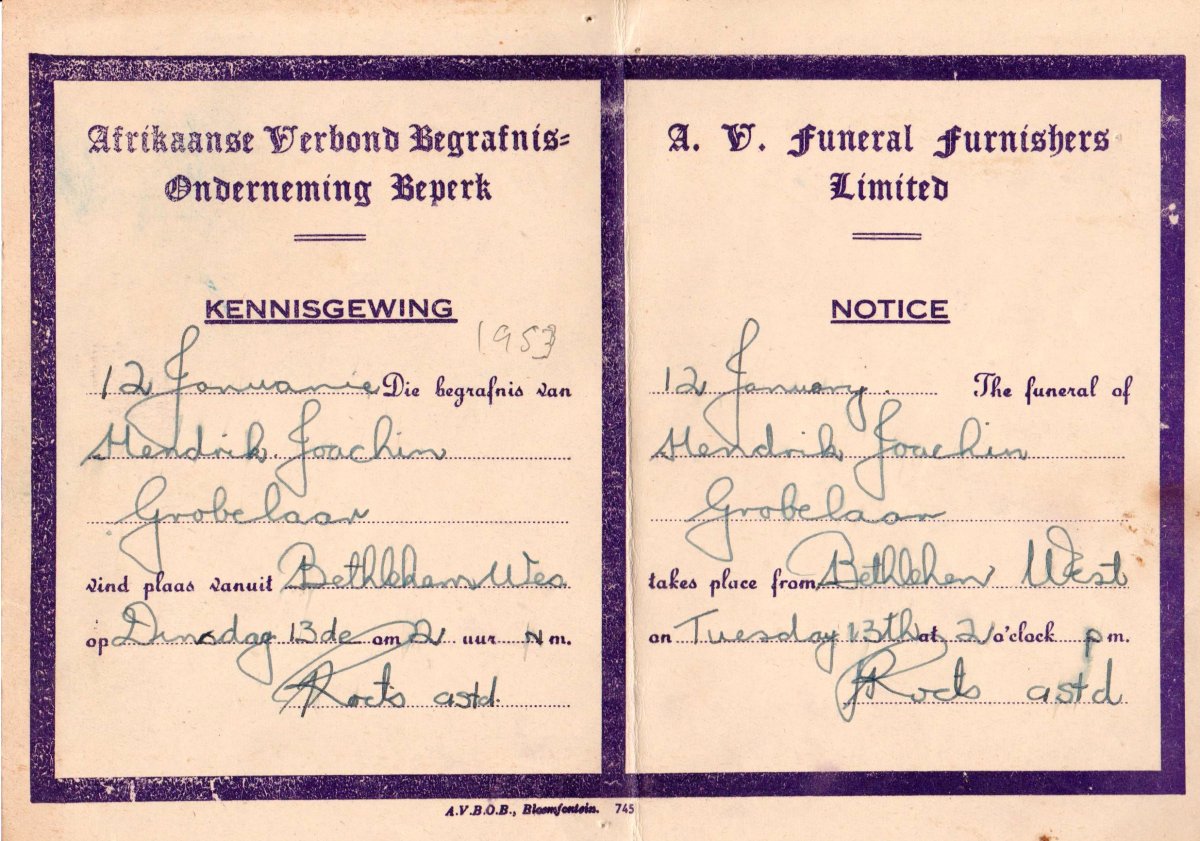 Afrikaanse Verbond Begrafnis-
Onderneming Beperk
KENNISGEWING
1953
12 Januarie Die begrafnis van
Hendrik Joachin
Grobelaar
vind plaas vanuit Bethlehem Wes
op Dinsdag 13de om 2 uur N m.
Roets astd.
A. V. Funeral Furnishers
Limited
NOTICE
12 January. The funeral of
Hendrik Joachin
Grobelaar
takes place from Bethlehem West
on Tuesday 13th at 2 o'clock p m.
Roets astd
A.V.B.O.B., Bloemfontein. 745